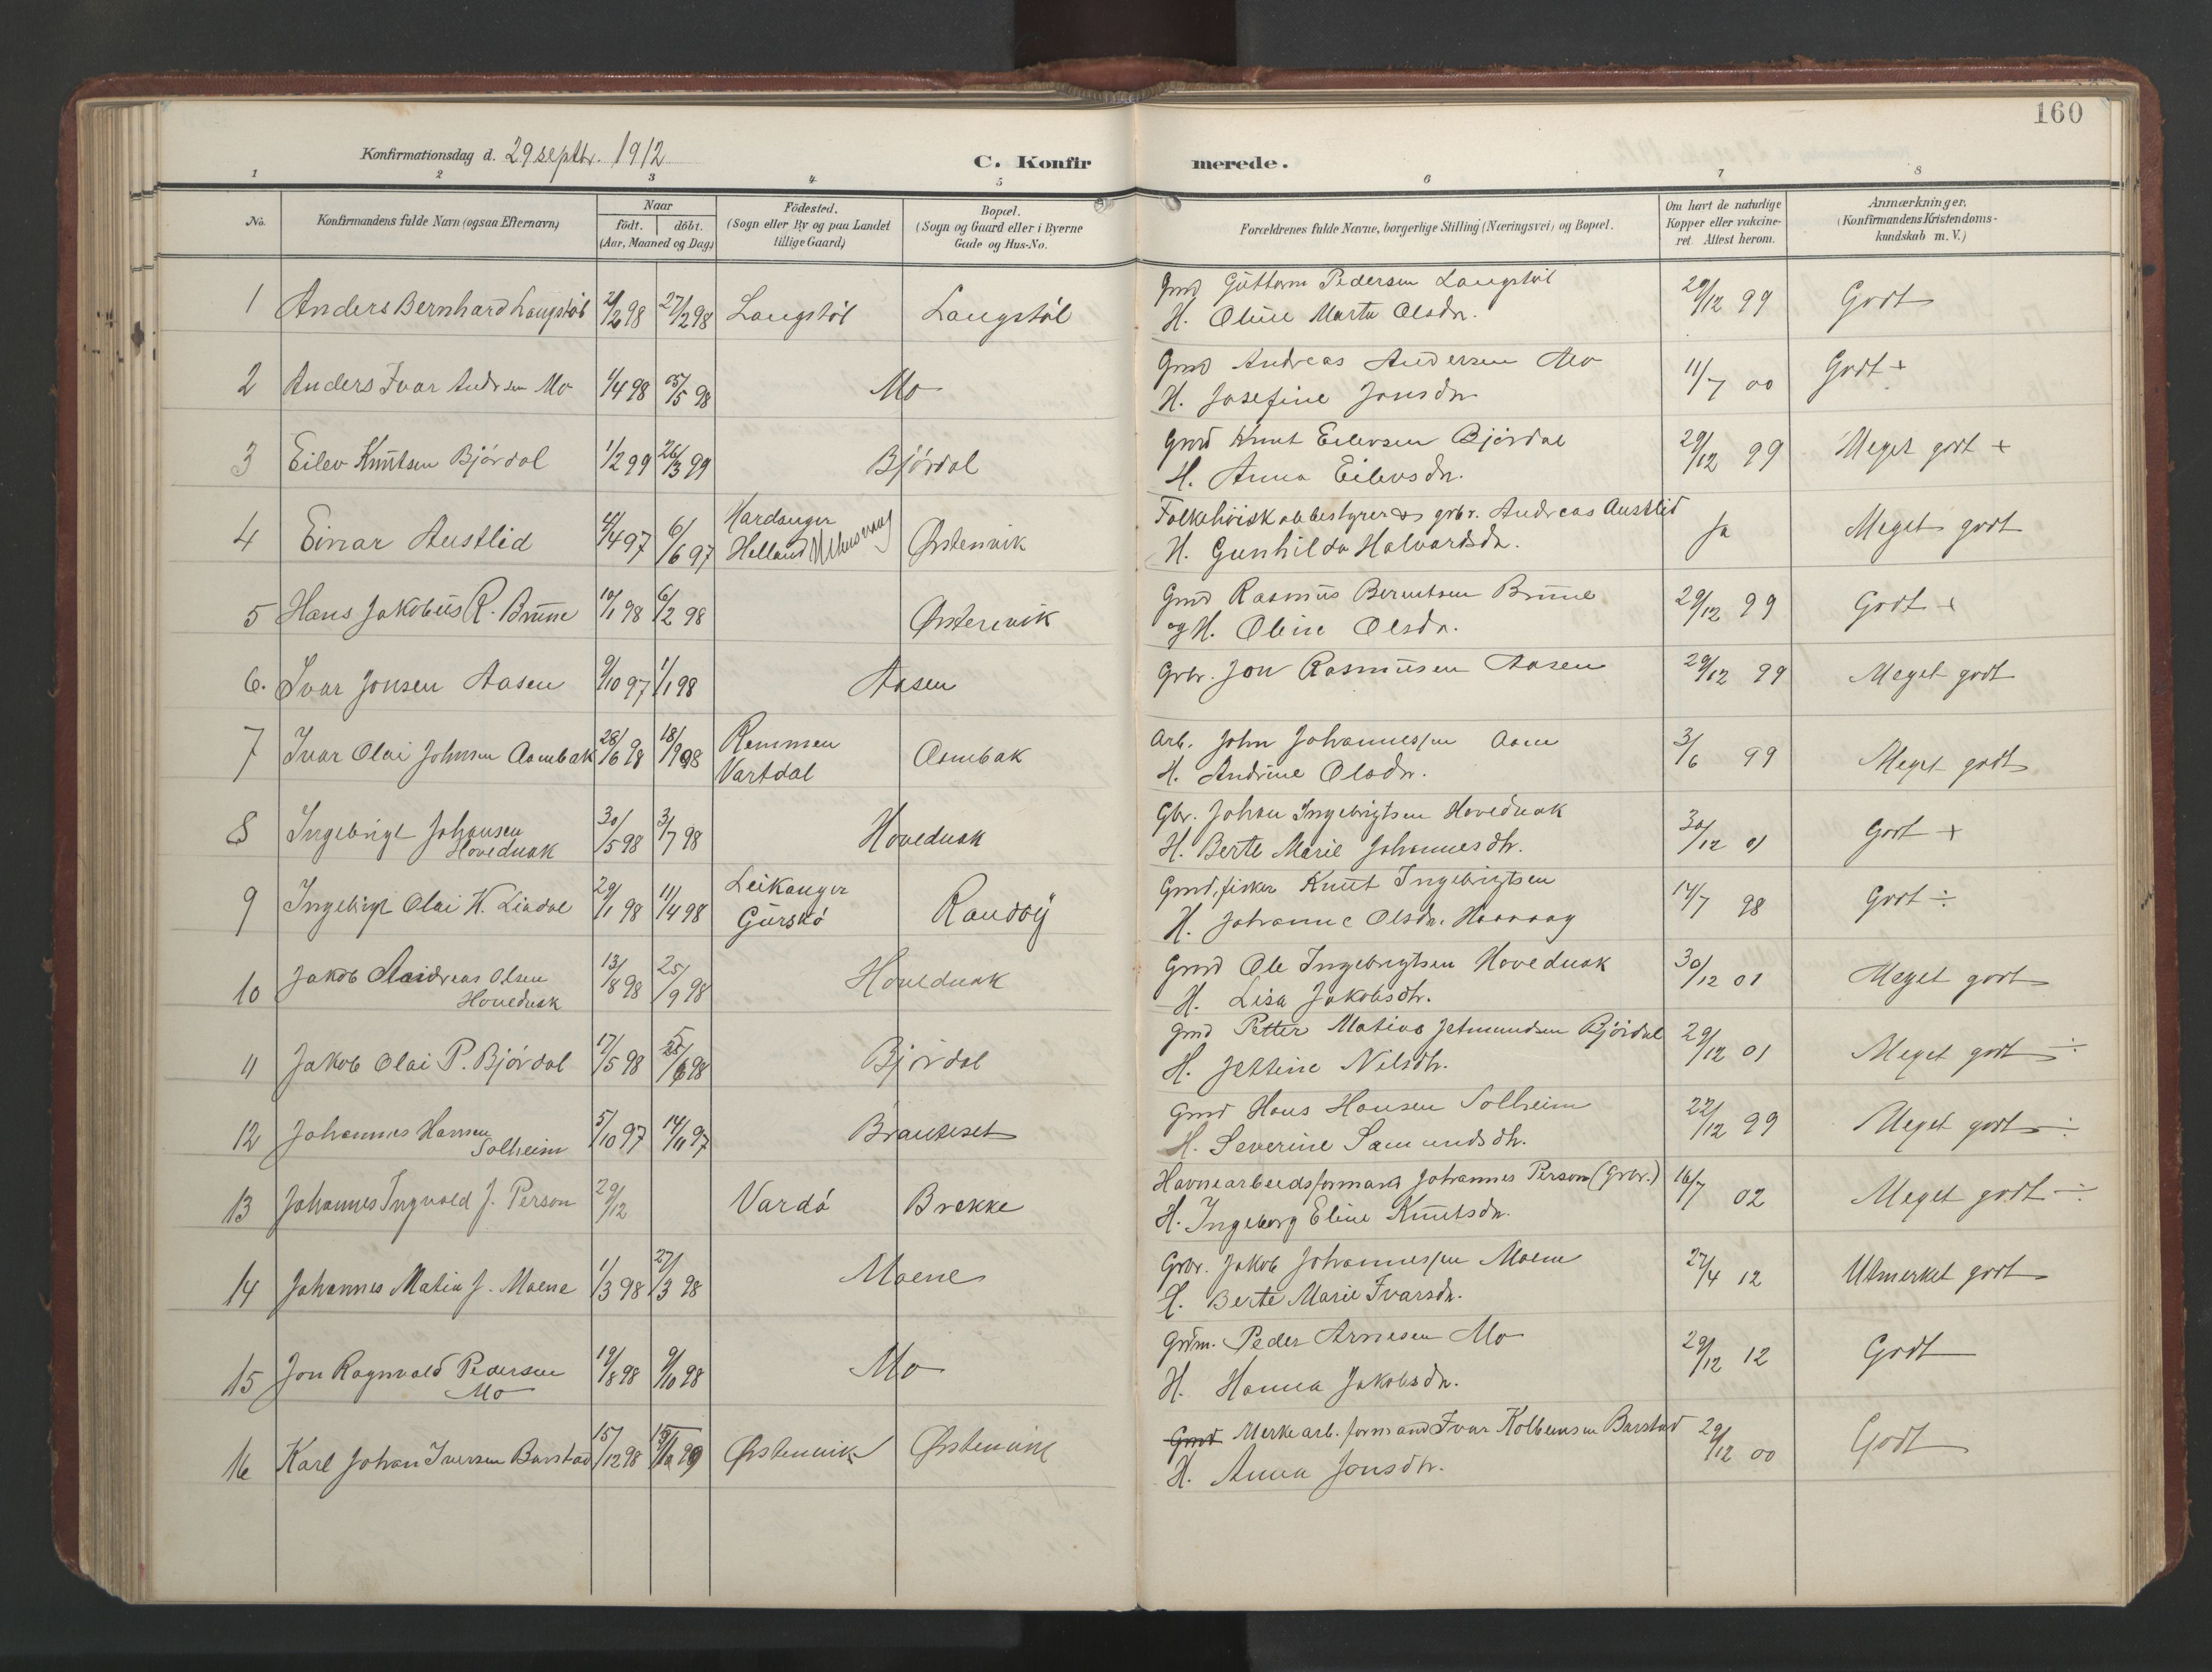 160
Konfirmationsdag d. 29 septbr. 1912
C. Konfirmerede.
1 2 3 4 5 6 7 8
No.
Konfirmandens fulde Navn (ogsaa Efternavn)
Naar
födt. döbt.
(Aar, Maaned og Dag)
Födested.
(Sogn eller By og paa Landet
tillige Gaard)
Bopæl.
(Sogn og Gaard eller i Byerne
Gade og Hus-No.
Forældrenes fulde Navne, borgerlige Stilling (Næringsvei) og Bopæl.
Om havt de naturlige
Kopper eller vakcine-
ret. Attest herom.
Anmærkninger.
(Konfirmandens Kristendoms-
kundskab m. V.)
1 Anders Bernhard Langstöl 2/2 98 27/2 98 Langstöl Langstöl
Gmd Guttorm Pedersen Langstöl 29/12 99 Godt
H. Oline Marta Olsdr.
2 Anders Ivar Andrsen Mo 1/4 98 /5 98 Mo
Gmd Andreas Andersen Mo 11/7 00 Godt +
H. Josefine Jonsdr
3 Eilev Knutsen Björdal 1/2 99 26/3 99 Björdal
Gmd Knut Eilevsen Björdal 29/12 99 Meget godt +
H. Anna Eilevsdr.
4 Einar Austlid /4 97 6/6 97 Hardanger
Helland Ørstenvik
Folkehöiskolebestyrer & grbr. Andreas Austlid Ja Meget godt
H. Gunhilda Halvardsdr.
5 Hans Jakobus R. Brune 10/1 98 6/2 98 Ørstenvik
Gmd Rasmus Berntsen Brune 29/12 99 Godt +
og H. Oline Olsdr.
6. Ivar Jonsen Aasen 9/10 97 1/1 98 Aasen
Grbr. Jon Rasmusen Aasen 29/12 99 Meget godt
7 Ivar Olai Johnsen Aambak 28/6 98 18/9 98 Remmen
Vartdal Aambak
Arb. John Johannessen Aam 3/6 99 Meget godt
H. Andrine Olsdr.
8 Ingebrigt Johansen
Hovednak 30/5 98 3/7 98 Hovednak
Gbr. Johan Ingebrigtsen Hovednak 30/12 01 Godt +
H. Berte Marie Johannesdtr.
9 Ingebrigt Olai K. Lindal 29/1 98 11/4 98 Leikanger
Gurskö Raudöy
Gmd, fisker Knut Ingebrigtsen 14/7 98 Godt ÷
H. Johanne Olsdr.
10 Jakob Andreas Olsen
Hovednak 13/8 98 25/9 98 Hovednak
Gmd Ole Ingebrigtsen Hovednak 30/12 01 Meget godt
H. Lisa Jakobsdtr.
11 Jakob Olai P. Björdal 17/5 98 5/6 98 Björdal
Gmd Petter Matias Jetmundsen Björdal 29/12 01 Meget godt ÷
H. Jettine Nilsdtr.
12 Johannes Hansen
Solheim 5/10 97 14/11 97 Brauteset
Gmd Hans Hansen Solheim 22/12 99 Meget godt ÷
H. Severine Samundsdtr.
13 Johannes Ingvald J. Person 29/12 Vardö Brekke
Havnearbeidsformand Johannes Person (Grbr.) 16/7 02 Meget godt ÷
H. Ingeborg Eline Knutsdr.
14 Johannes Matia J. Moene 1/3 98 27/3 98 Moene
Grbr. Jakob Johannessen Moene 27/4 12 Utmerket godt
H. Berte Marie Ivarsdr.
15 Jon Ragnvald Pedersen
Mo 19/8 98 9/10 98 Mo
Grdm. Peder Arnesen Mo 29/12 12 Godt
H. Hanna Jakobsdr.
16 Karl Johan Iversen Barstad 15/12 98 Ørstenvik Ørstenvik
Gmd Merkearb. formand Ivar Kolbensen Barstad 29/12 00 Godt
H. Anna Jonsdtr.